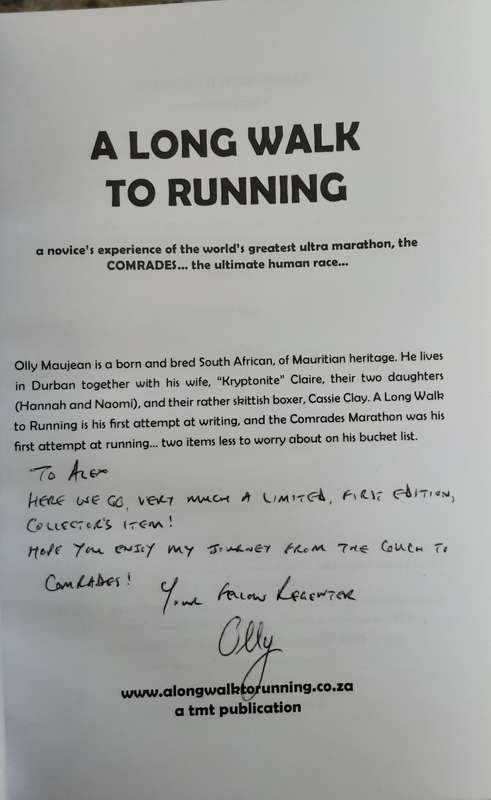 A LONG WALK
TO RUNNING
a novice's experience of the world's greatest ultra marathon, the
COMRADES... the ultimate human race...
Olly Maujean is a born and bred South African, of Mauritian heritage. He lives
in Durban together with his wife, "Kryptonite" Claire, their two daughters
(Hannah and Naomi), and their rather skittish boxer, Cassie Clay. A Long Walk
to Running is his first attempt at writing, and the Comrades Marathon was his
first attempt at running... two items less to worry about on his bucket list.
TO ALEX
HERE WE GO, VERY MUCH A LIMITED, FIRST EDITION,
COLLECTOR'S ITEM!
HOPE YOU ENJOY MY JOURNEY FROM THE COUCH TO
COMRADES!
Your FELLOW REGENTER
Olly
www.alongwalktorunning.co.za
a tmt publication